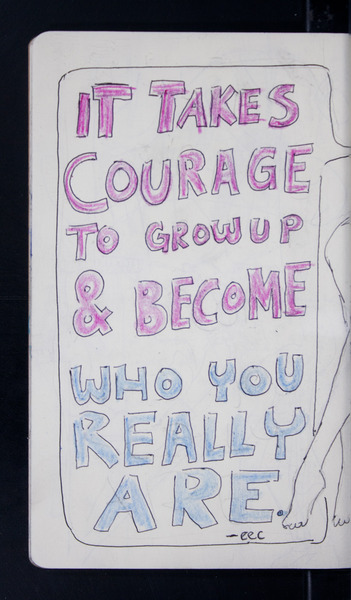 IT TAKES
COURAGE
TO GROW UP
& BECOME
WHO YOU
REALLY
ARE.
-eec